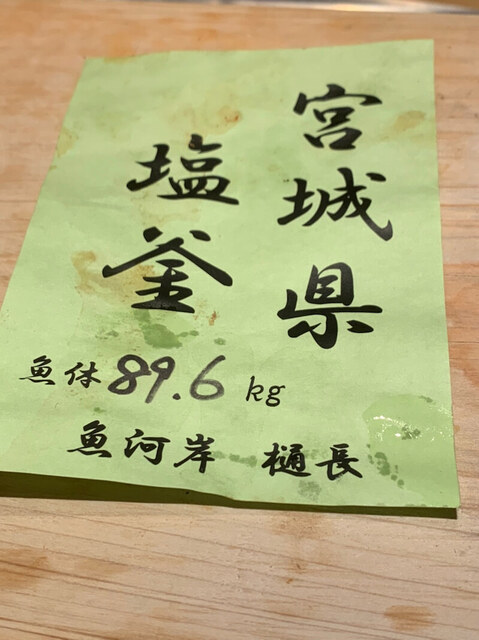 宮城県
塩釜
魚体 89.6 kg
魚河岸 樋長